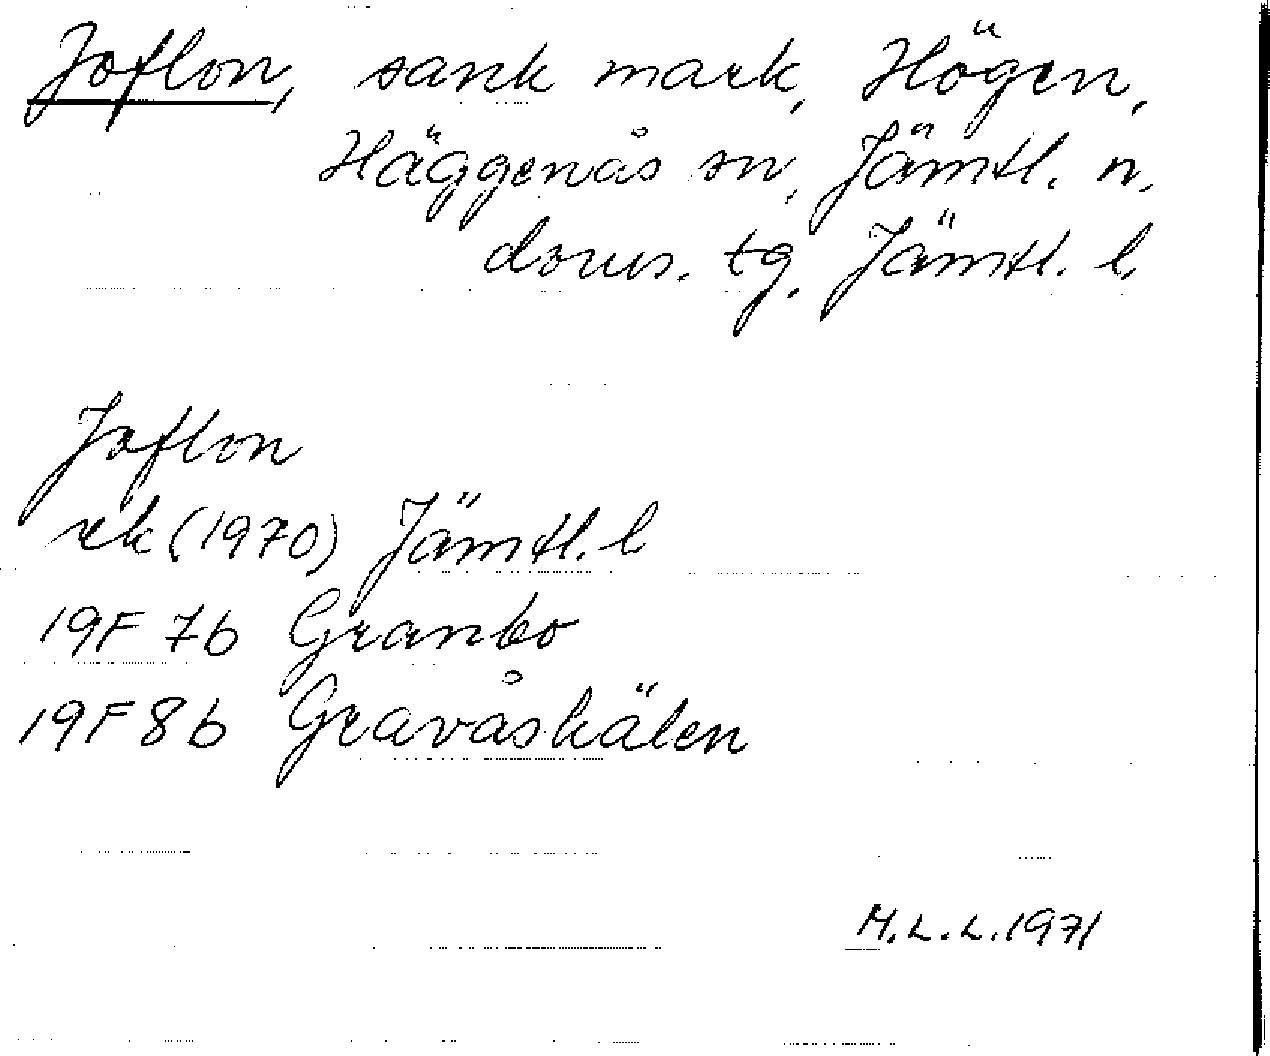 Joflon, sank mark, Högen,
Häggenås sn, Jämtl. n.
doms. tg. Jämtl. l.
Joflon
rek (1970) Jämtl. l
19F 7b Granbo
19F 8b Gravåskälen
M.L.L. 1971